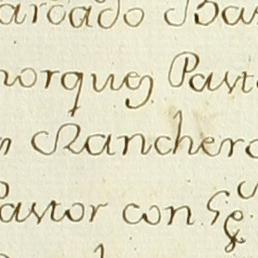 arcado D Bas
norques Past
n Ranchero
Pastor con